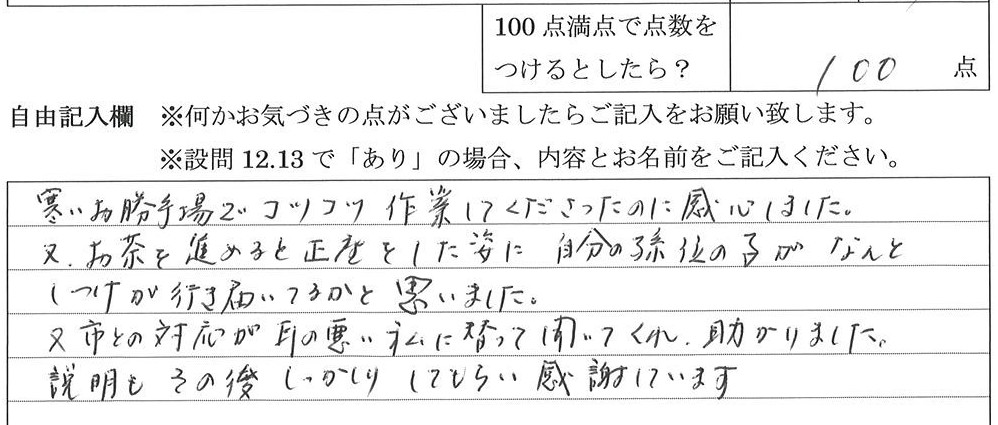 100点満点で点数を
つけるとしたら？
100 点
自由記入欄 ※何かお気づきの点がございましたらご記入をお願い致します。
※設問12.13で「あり」の場合、内容とお名前をご記入ください。
寒いお勝手場でコツコツ作業してくださったのに感心しました。
又、お茶を進めると正座をした姿に自分の孫位の子がなんと
しつけが行き届いてるかと思いました。
又市との対応が耳の悪い私に替って聞いてくれ、助かりました。
説明もその後しっかりしてもらい感謝しています